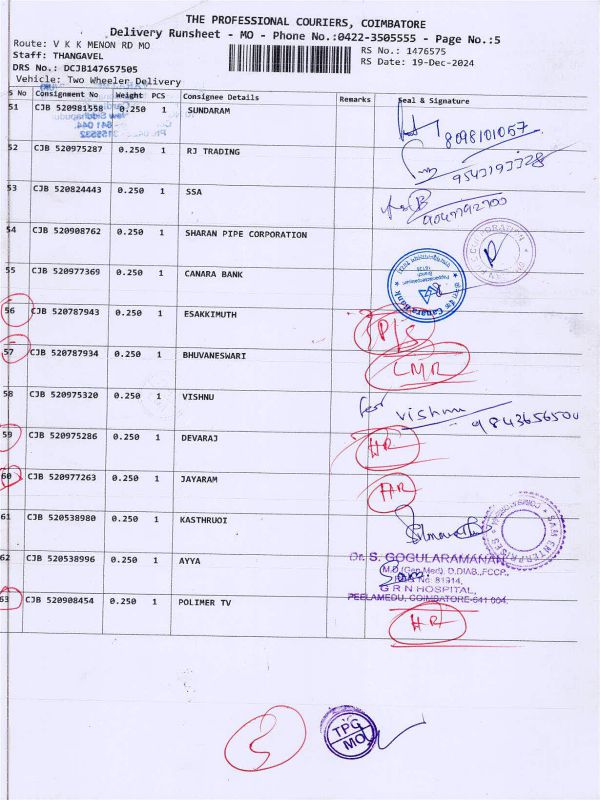 THE PROFESSIONAL COURIERS, COIMBATORE
Delivery Runsheet - MO - Phone No.:0422-3505555 - Page No.:5
Route: V K K MENON RD MO
RS No.: 1476575
Staff: THANGAVEL
RS Date: 19-Dec-2024
DRS No.: DCJB147657505
Vehicle: Two Wheeler Delivery
S No Consignment No Weight PCS Consignee Details Remarks Seal & Signature
51 CJB 520981558 0.250 1 SUNDARAM 8098101057
52 CJB 520975287 0.250 1 RJ TRADING
53 CJB 520824443 0.250 1 SSA
54 CJB 520908762 0.250 1 SHARAN PIPE CORPORATION
55 CJB 520977369 0.250 1 CANARA BANK
Canara Bank
56 CJB 520787943 0.250 1 ESAKKIMUTH P/S
57 CJB 520787934 0.250 1 BHUVANESWARI LMR
58 CJB 520975320 0.250 1 VISHNU for vishnu 9843656500
59 CJB 520975286 0.250 1 DEVARAJ HR
60 CJB 520977263 0.250 1 JAYARAM HR
61 CJB 520538980 0.250 1 KASTHRUOI
SAM ENTERPRISES
62 CJB 520538996 0.250 1 AYYA
Dr. S. GOGULARAMANAN
M.D (Gen.Med), D.DIAB.,FCCP.,
Reg No: 81914,
G R N HOSPITAL,
PEELAMEDU, COIMBATORE-641 004.
63 CJB 520908454 0.250 1 POLIMER TV HR
TPC
MO